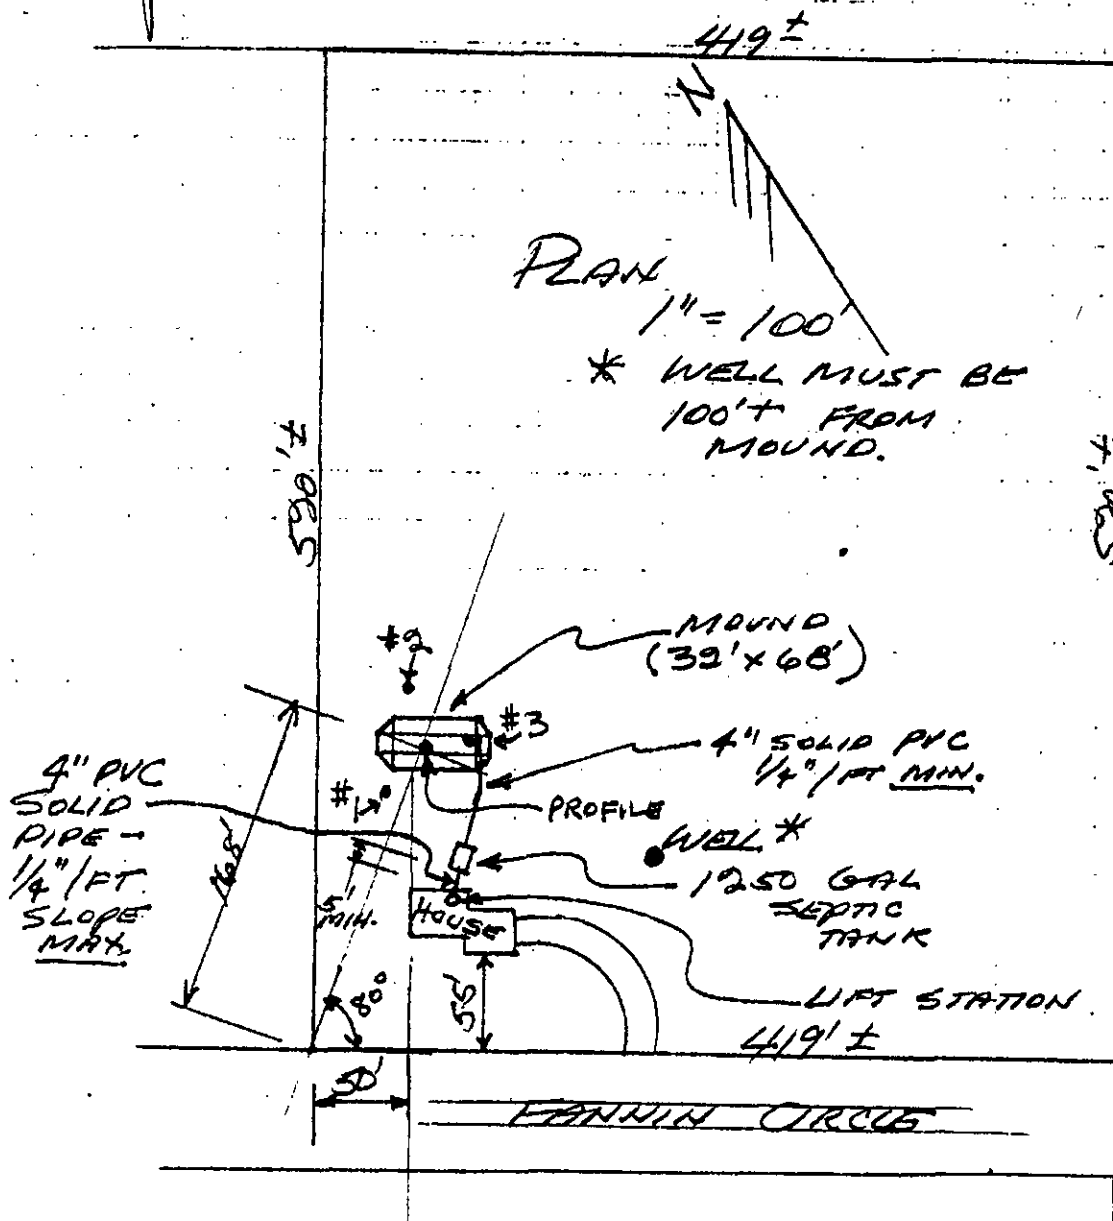 419 ±
N
PLAN
1" = 100'
* WELL MUST BE
100'+ FROM
MOUND.
590' ±
#2
MOUND
(32' x 68')
#3
4" SOLID PVC
1/4" / FT MIN.
4" PVC
SOLID
PIPE -
1/4" / FT.
SLOPE
MAX.
#1
PROFILE
WELL *
1250 GAL
SEPTIC
TANK
168'
5'
MIN.
HOUSE
80°
55'
LIFT STATION
419' ±
50'
FANNIN CIRCLE